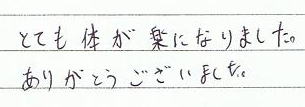 とても体が楽になりました。
ありがとうございました。